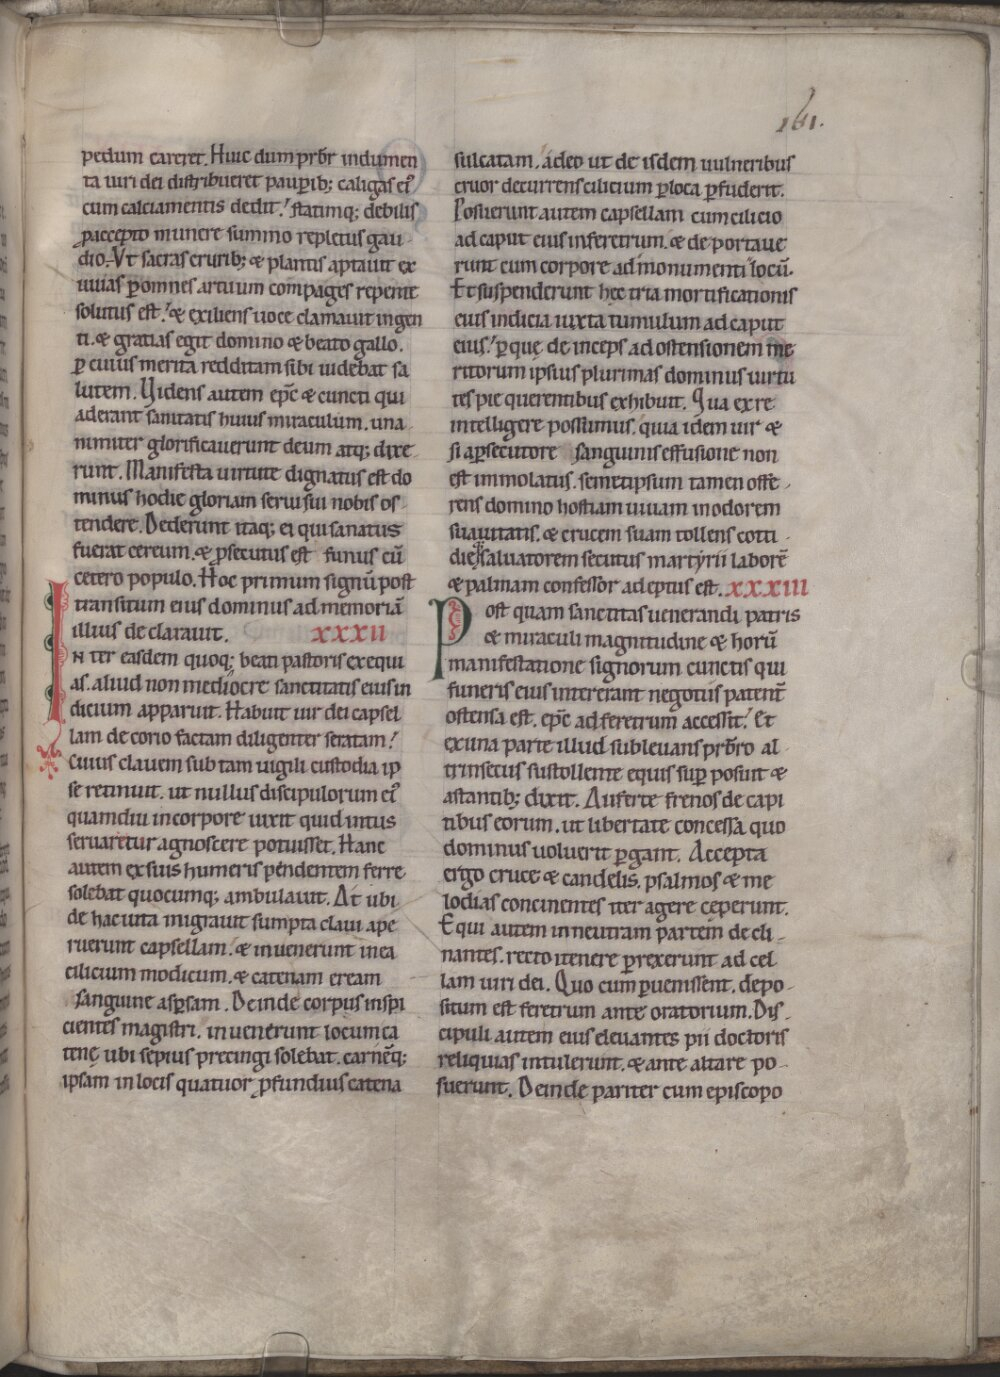 161.
pedum careret. Huic dum prbr indumen
ta uiri dei distribueret paupib; caligas ei᾽
cum calciamentis dedit. Statimq; debilis
p accepto munere summo repletus gau-
dio. Vt sacras crurib; & plantis aptauit ex
uuias p omnes artuum compages repente
solutus est. & exiliens uoce clamauit ingen
ti. & gratias egit domino & beato gallo.
p cuius merita redditam sibi uidebat sa
lutem. Videns autem epc & cuncti qui
aderant sanitatis huius miraculum. una
nimiter glorificauerunt deum atq; dixe-
runt. Manifesta uirtute dignatus est do
minus hodie gloriam serui sui nobis os-
tendere. Dederunt itaq; ei qui sanatus
fuerat cereum. & psecutus est funus cū
cetero populo. Hoc primum signū post
transitum eius dominus ad memoriā
illius declarauit. XXXII
INter easdem quoq; beati pastoris exequi
as. aliud non mediocre sanctitatis eius in
dicium apparuit. Habuit uir dei capsel
lam de corio factam diligenter seratam.
Cuius clauem sub tam uigili custodia ip
se retinuit. ut nullus discipulorum ei᾽
quamdiu in corpore uixit quid intus
seruaretur agnoscere potuisset. Hanc
autem ex suis humeris pendentem ferre
solebat quocumq; ambulauit. At ubi
de hac uita migrauit sumpta claui ape
ruerunt capsellam. & inuenerunt in ea
cilicium modicum. & catenam eream
sanguine aspsam. Deinde corpus inspi
cientes magistri. inuenerunt locum ca
tenę ubi sepius precingi solebat. carnēq;
ipsam in locis quatuor pfundius catena
sulcatam. adeo ut de isdem uulneribus
cruor decurrens cilicium p loca pfuderit.
Posuerunt autem capsellam cum cilicio
ad caput eius in feretrum. & deportaue
runt cum corpore ad monumenti locū.
Et suspenderunt hec tria mortificationis
eius indicia iuxta tumulum ad caput
eius. p quę deinceps ad ostensionem me
ritorum ipsius plurimas dominus uirtu
tes pie querentibus exhibuit. Qua ex re
intelligere possumus. quia idem uir &
si a psecutore sanguinis effusione non
est immolatus. semetipsum tamen offe-
rens domino hostiam uiuam in odorem
suauitatis. & crucem suam tollens cotti-
die saluatorem secutus martyrii laborē
& palmam confessor adeptus est. XXXIII
Post quam sanctitas uenerandi patris
& miraculi magnitudine & horū
manifestatione signorum cunctis qui
funeris eius intererant negotiis patent̄
ostensa est. epc ad feretrum accessit. Et
ex una parte illud subleuans prbro al-
trinsecus sustollente equis sup posuit &
astantib; dixit. Auferte frenos de capi
tibus eorum. ut libertate concessa quo
dominus uoluerit pgant. Accepta
ergo cruce & candelis. psalmos & me
lodias concinentes iter agere ceperunt.
Equi autem in neutram partem decli-
nantes. recto itenere prexerunt ad cel
lam uiri dei. Quo cum puenissent. depo-
situm est feretrum ante oratorium. Dis-
cipuli autem eius eleuantes pii doctoris
reliquias intulerunt. & ante altare po-
suerunt. Deinde pariter cum episcopo